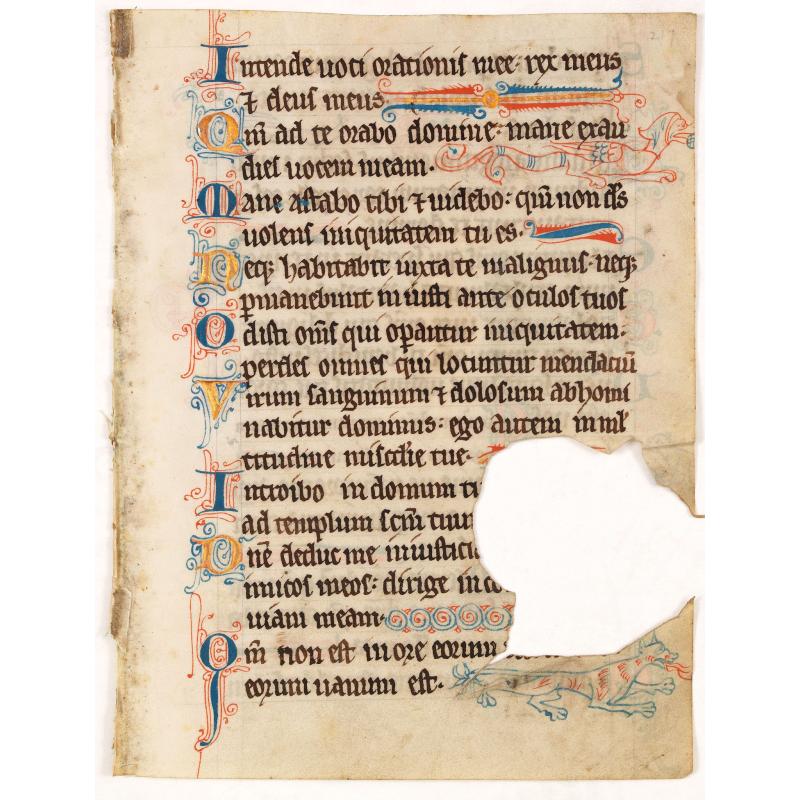 Intende uoci orationis mee rex meus
⁊ deus meus
Qm̄ ad te orabo domine mane exau
dies uocem meam.
Mane astabo tibi ⁊ uidebo qm̄ non ds̄
uolens iniquitatem tu es.
Neqꝫ habitabit iuxta te malignus neqꝫ
ꝑmanebunt iniusti ante oculos tuos
Odisti om̄s qui oꝑantur iniquitatem.
perdes omnes qui locuntur mendaciū
Virum sanguinum ⁊ dolosum abhomi
nabitur dominus ego autem in ml̄
titudine misc̄die tue.
Introibo in domum
ad templum sc̄m tuum
Dn̄e deduc me in iusticia
imicos meos dirige in co
uiam meam
Qm̄ non est in ore eorum
eorum uanum est.